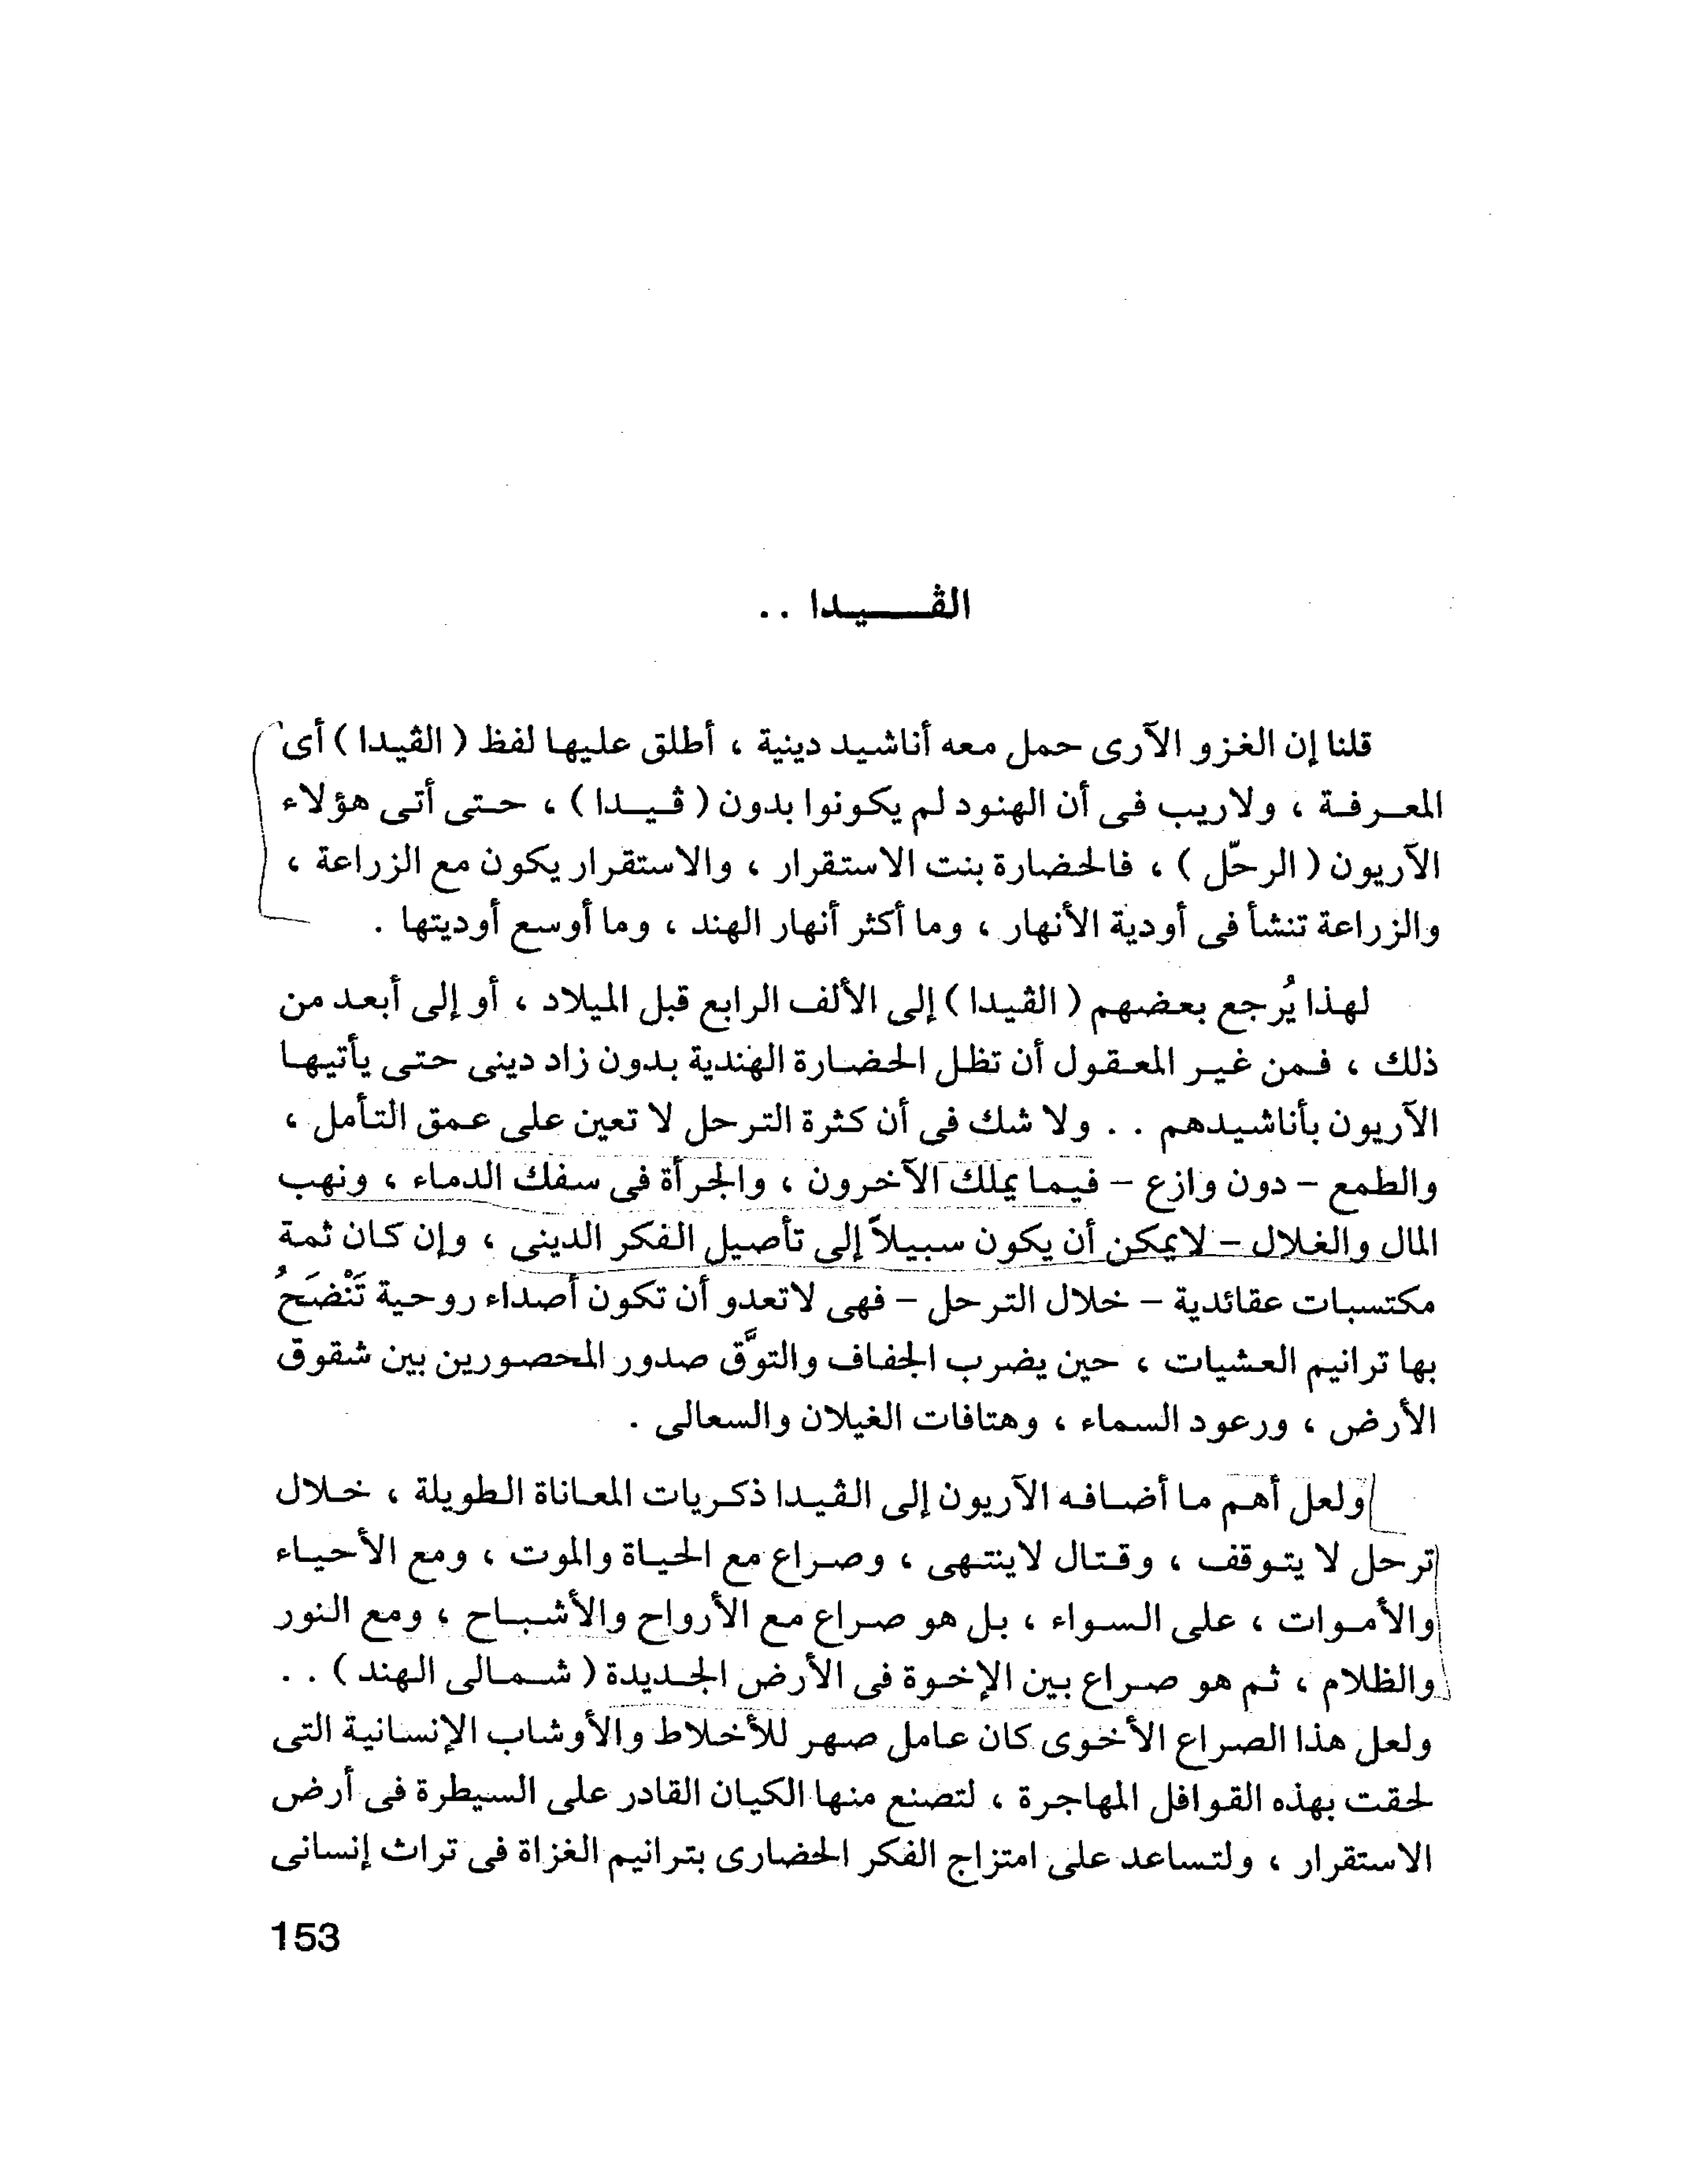 الڤـــيدا . .
قلنا إن الغزو الآرى حمل معه أناشيد دينية ، أطلق عليها لفظ ( الڤيدا ) أى
المعرفة ، ولاريب فى أن الهنود لم يكونوا بدون ( ڤيدا ) ، حتى أتى هؤلاء
الآريون ( الرحّل ) ، فالحضارة بنت الاستقرار ، والاستقرار يكون مع الزراعة ،
والزراعة تنشأ فى أودية الأنهار ، وما أكثر أنهار الهند ، وما أوسع أوديتها .
لهذا يُرجع بعضهم ( الڤيدا ) إلى الألف الرابع قبل الميلاد ، أو إلى أبعد من
ذلك ، فمن غير المعقول أن تظل الحضارة الهندية بدون زاد دينى حتى يأتيها
الآريون بأناشيدهم . . ولا شك فى أن كثرة الترحل لا تعين على عمق التأمل ،
والطمع – دون وازع – فيما يملك الآخرون ، والجرأة فى سفك الدماء ، ونهب
المال والغلال – لايمكن أن يكون سبيلاً إلى تأصيل الفكر الدينى ، وإن كان ثمة
مكتسبات عقائدية – خلال الترحل – فهى لاتعدو أن تكون أصداء روحية تَنْضَحُ
بها ترانيم العشيات ، حين يضرب الجفاف والتوَّق صدور المحصورين بين شقوق
الأرض ، ورعود السماء ، وهتافات الغيلان والسعالى .
ولعل أهم ما أضافه الآريون إلى الڤيدا ذكريات المعاناة الطويلة ، خلال
ترحل لا يتوقف ، وقتال لاينتهى ، وصراع مع الحياة والموت ، ومع الأحياء
والأموات ، على السواء ، بل هو صراع مع الأرواح والأشباح ، ومع النور
والظلام ، ثم هو صراع بين الإخوة فى الأرض الجديدة ( شمالى الهند ) . .
ولعل هذا الصراع الأخوى كان عامل صهر للأخلاط والأوشاب الإنسانية التى
لحقت بهذه القوافل المهاجرة ، لتصنع منها الكيان القادر على السيطرة فى أرض
الاستقرار ، ولتساعد على امتزاج الفكر الحضارى بترانيم الغزاة فى تراث إنسانى
153